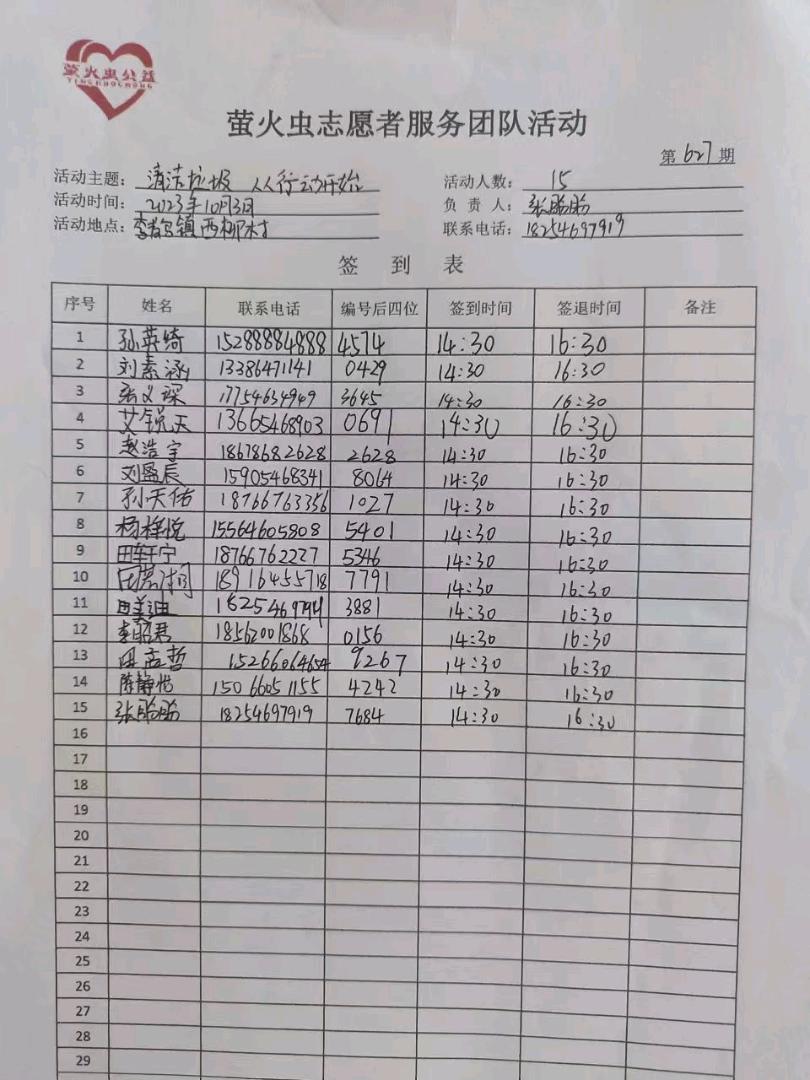 萤火虫公益
YINGHUOCHONG
萤火虫志愿者服务团队活动
第 627 期
活动主题: 清洁垃圾 从行动开始 活动人数: 15
活动时间: 2023年10月3日 负 责 人: 张盼盼
活动地点: 镇西柳村 联系电话: 18254697919
签 到 表
序号 姓名 联系电话 编号后四位 签到时间 签退时间 备注
1 孙英绮 15288884888 4574 14:30 16:30
2 刘素涵 13386471141 0429 14:30 16:30
3 张义琛 17754634949 3645 14:30 16:30
4 艾锐天 13665468903 0691 14:30 16:30
5 赵浩宇 18678682628 2628 14:30 16:30
6 刘盈辰 15905468341 8064 14:30 16:30
7 孙天佑 18766763356 1027 14:30 16:30
8 杨梓悦 15564605808 5401 14:30 16:30
9 田轩宁 18766762227 5346 14:30 16:30
10 18916455718 7791 14:30 16:30
11 田美迪 1825469794 3881 14:30 16:30
12 李昭君 18562001868 0156 14:30 16:30
13 田孟哲 15266064654 9267 14:30 16:30
14 陈静怡 15066051155 4242 14:30 16:30
15 张盼盼 18254697919 7684 14:30 16:30
16
17
18
19
20
21
22
23
24
25
26
27
28
29